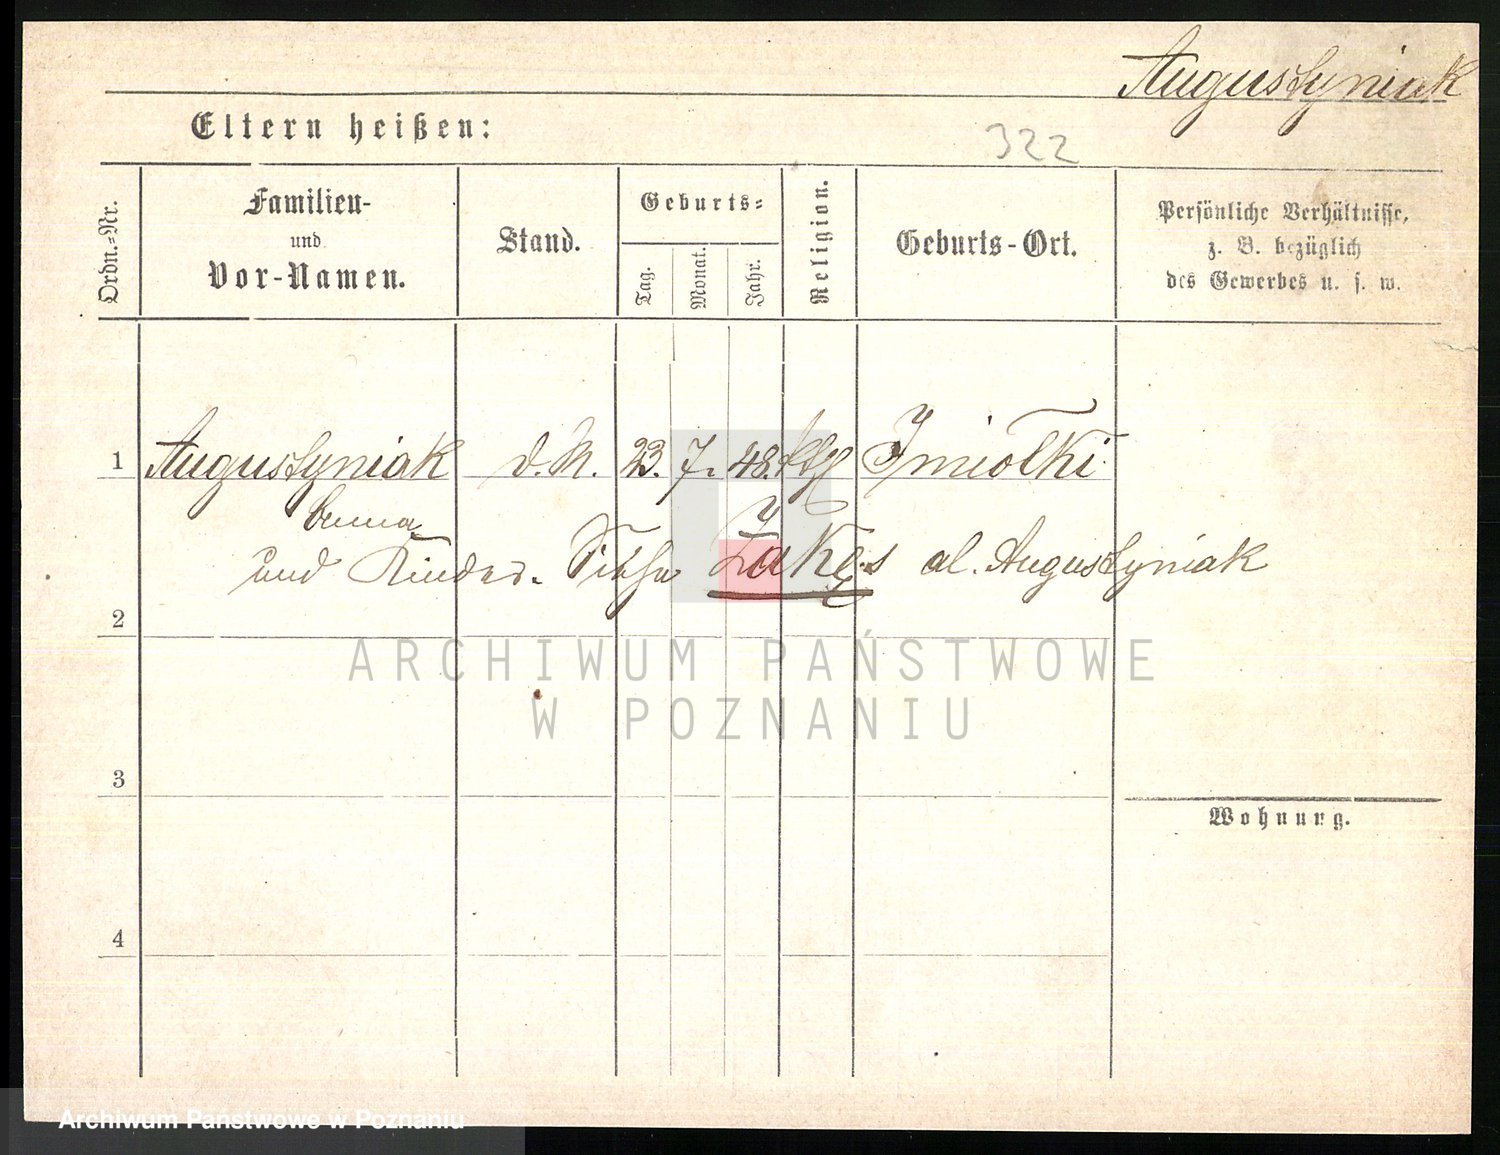 Augustyniak
Eltern heißen:
322
Ordn.=Nr.
Familien-
und
Vor-Namen.
Stand.
Geburts=
Tag.
Monat.
Jahr.
Religion.
Geburts-Ort.
Persönliche Verhältnisse,
z. B. bezüglich
des Gewerbes u. s. w.
1 Augustyniak d. M. 23. 7. 48. kth Imiolki
und Kinder. Siehe Żakęs al. Augustyniak
2
ARCHIWUM PAŃSTWOWE
W POZNANIU
3
Wohnung.
4
Archiwum Państwowe w Poznaniu